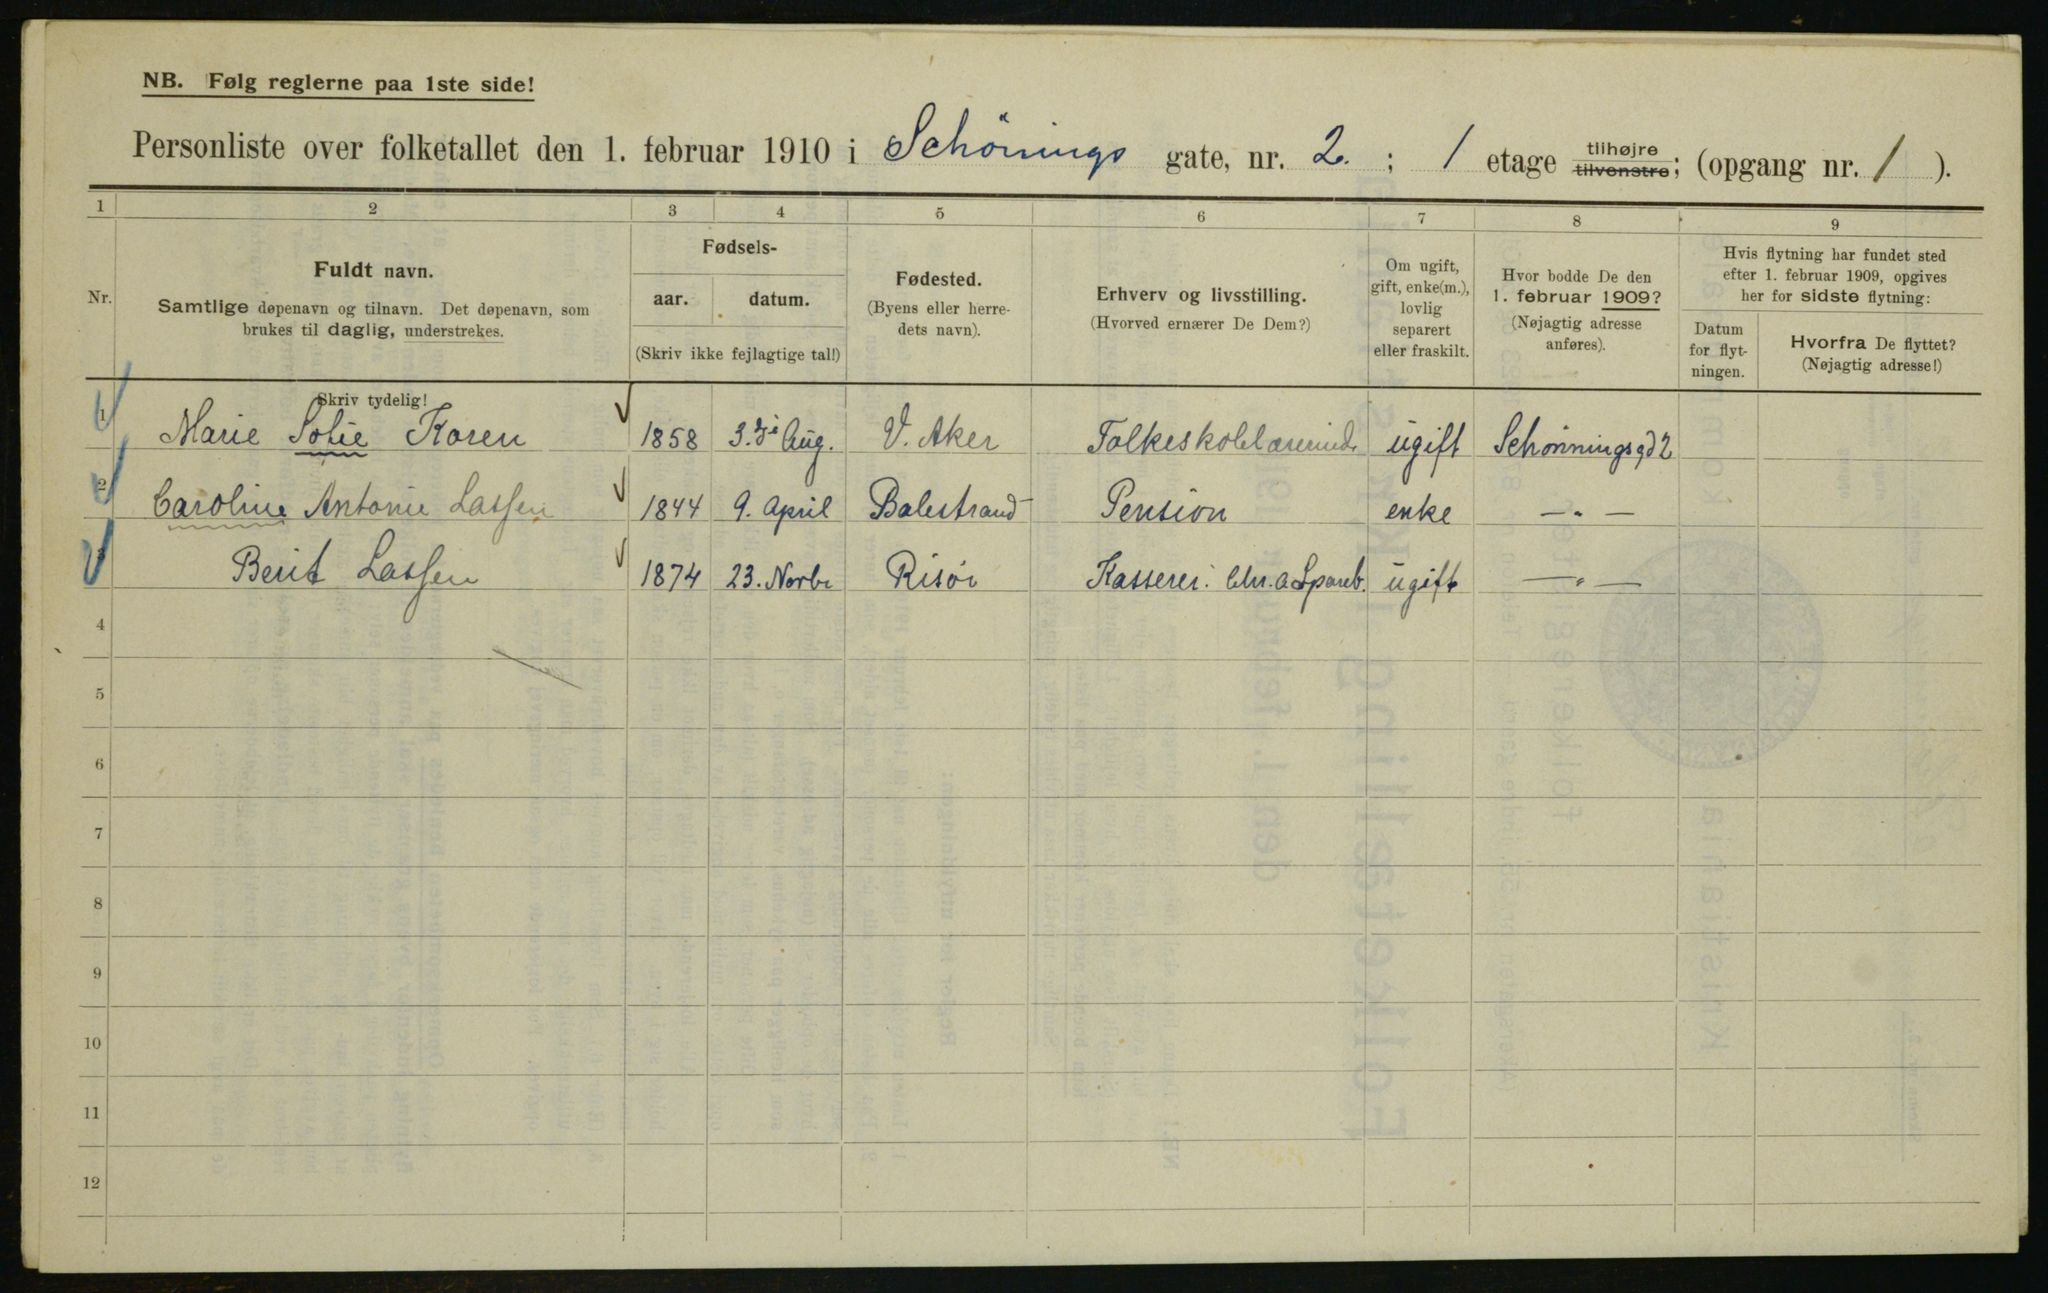 NB. Følg reglerne paa 1ste side!
Personliste over folketallet den 1. februar 1910 i Schönings gate, nr. 2. ; 1 etage tilhøjre tilvenstre; (opgang nr. 1 ).
1 2 3 4 5 6 7 8 9
Nr.
Fuldt navn.
Samtlige døpenavn og tilnavn. Det døpenavn, som
brukes til daglig, understrekes.
Fødsels-
aar. datum.
(Skriv ikke fejlagtige tal!)
Fødested.
(Byens eller herre-
dets navn).
Erhverv og livsstilling.
(Hvorved ernærer De Dem?)
Om ugift,
gift, enke(m.),
lovlig
separert
eller fraskilt.
Hvor bodde De den
1. februar 1909?
(Nøjagtig adresse
anføres).
Hvis flytning har fundet sted
efter 1. februar 1909, opgives
her for sidste flytning:
Datum
for flyt-
ningen.
Hvorfra De flyttet?
(Nøjagtig adresse!)
Skriv tydelig!
1 Marie Sofie Koren 1858 3.di Aug. V. Aker Folkeskolelærerinde ugift Schönningsgd 2
2 Caroline Antonie Lassen 1844 9. April Balestrand Pension enke — " —
3 Berit Lassen 1874 23. Novbr Risør Kasserer i Chr.a Spareb. ugift — " —
4
5
6
7
8
9
10
11
12